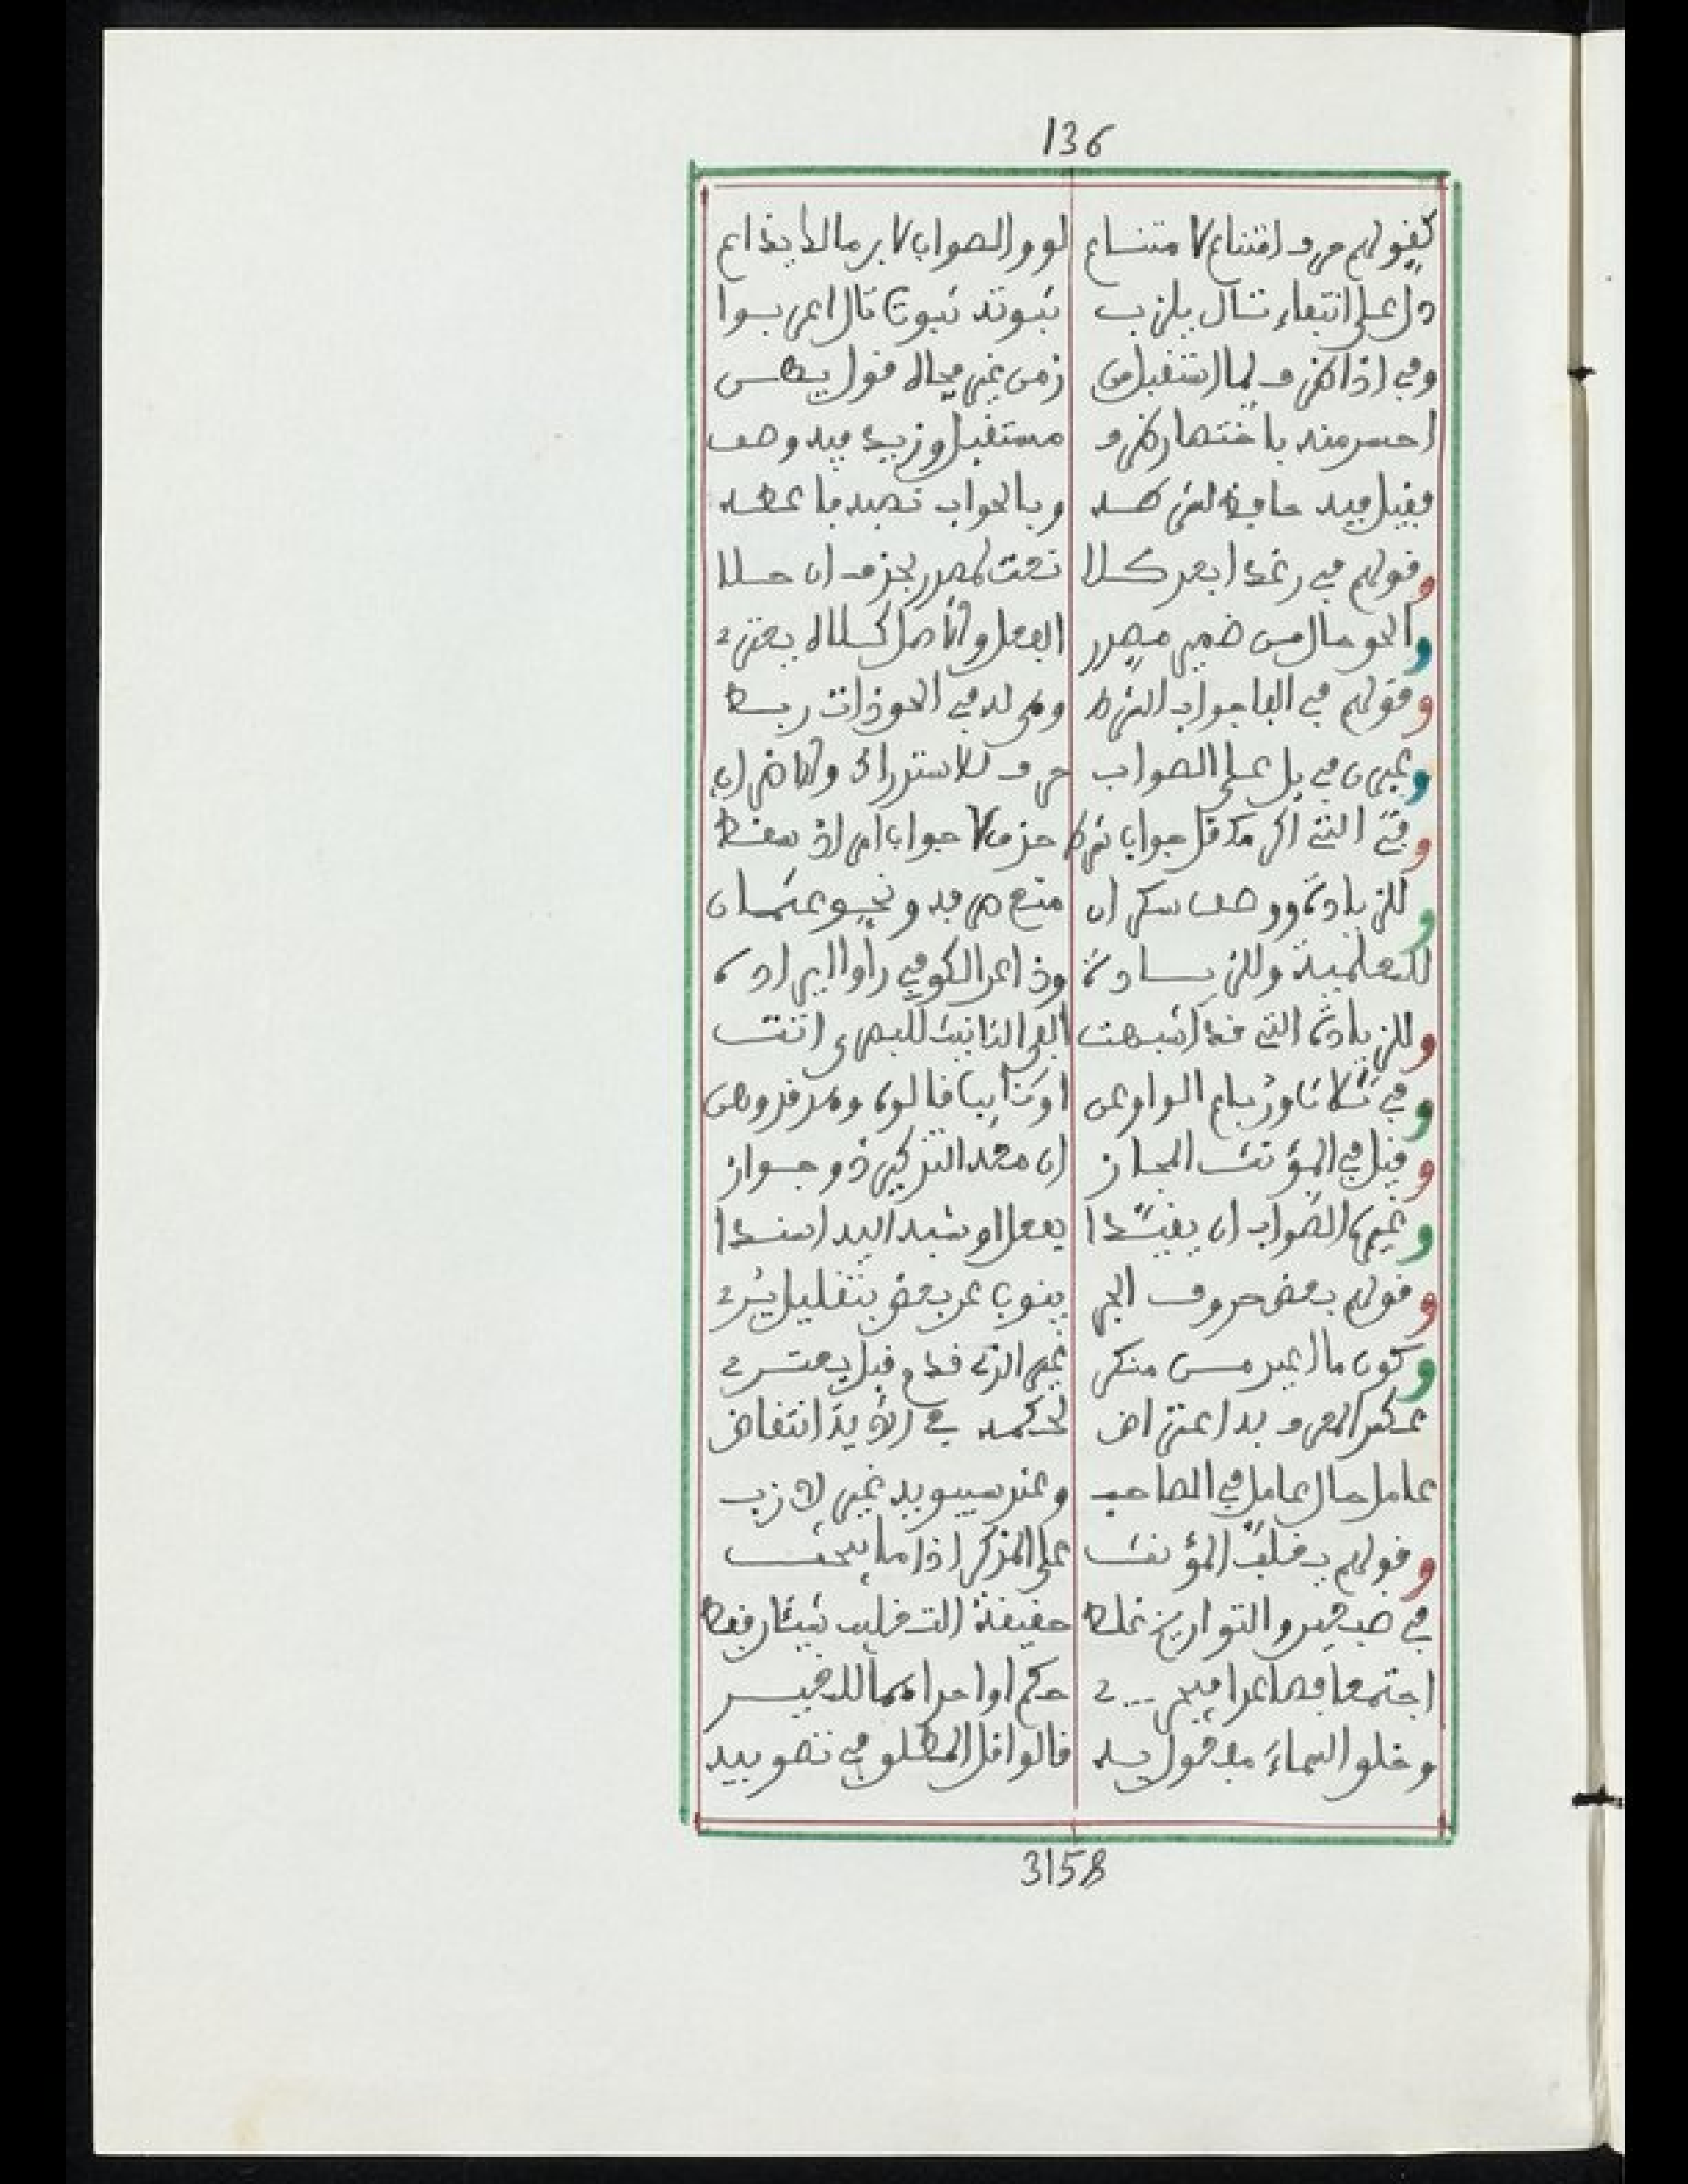 136
كقولهم حرف امتناع لامتناع لو والصواب لابن مالك يذاع
دل على انتفاء تال يلزم ب ثبوته ثبوت تال اعربوا
وفي اذا ظرف لما استقبل من زمن غير محاله قول
احسن منه باختصار ظرف مستقبل وزيد فيه وصف
فقيل فيه خافض لشرطه وبالجواب نصبه فاعطه
وقولهم في رغدا بعد كلا نعت لمصدر بحذف ان حلا
والحق حال من ضمير مصدر الفعل والاصل كلاه يعتري
وقولهم في الفا جواب الشرط وهي له في الحق ذات ربط
وغيرن في بل على الصواب حرف للاستدراك والاضراب
وفي ائتني اكرمك قل جواب شرط حذف لا جواب امر اذ سقط
وللزيادة ووصف سكران منع صرفه ونحو عثمان
للعلمية وللزيادة وذا عن الكوفي راوا ايراده
وللزيادة التي قد اشبهت الف التانيث للبصري اتت
وفي ثلاث او رباع الواو عن او نائبا قالوه وهو قد وهن
وقيل في المؤنث المجاز ان معه التذكير ذو جواز
وغيرها الصواب ان يقيدا بفعل او شبه اليه اسندا
وقولهم بعض حروف الجر ينوب عن بعض بتقليل يري
وكون ما اعيد من منكر غير الذي قدم قبل يعتري
عكس المعرف به اعتراض لحكمه في الآية انتقاض
عامل حال عامل في الصاحب وعند سيبويه غير لازب
وقولهم يغلب المؤنث على المذكر اذا ما يبحث
في ضبعين والتواريخ غلط حقيقة التغليب شيئان فقط
اجتمعا فصاعدا فيجري حكم اوا حدا هما للغير
وخلق السماء مفعول به قالوا قل المطلق في تصويبه
3158